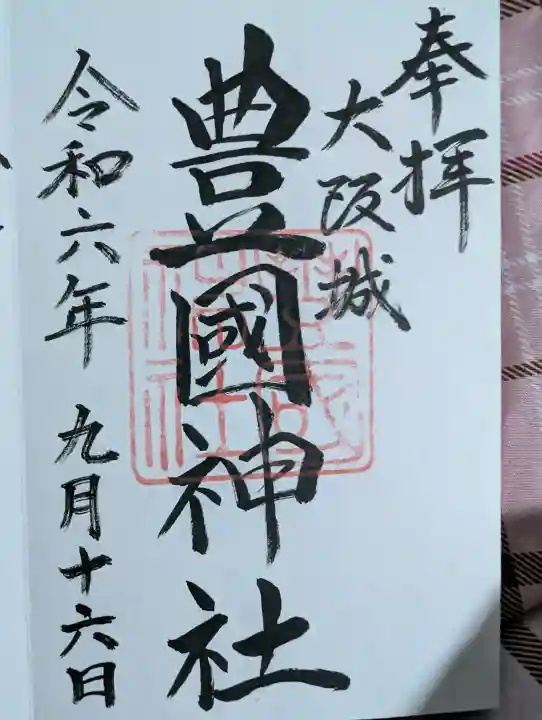 奉拝
大阪城
豊國神社
令和六年 九月十六日